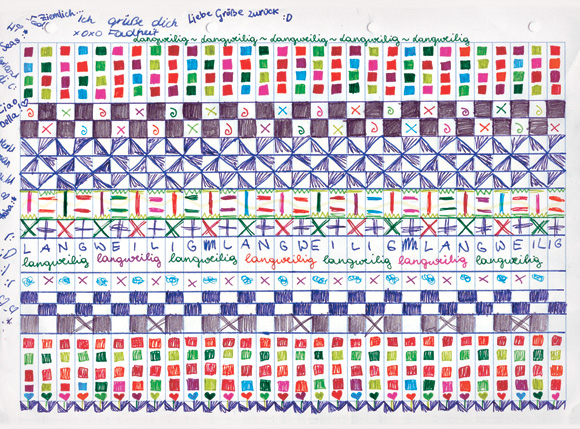 ziemlich...
Ich grüße dich Liebe Grüße zurück :D
xoxo
Langweilig ~ Langweilig ~ Langweilig ~ Langweilig ~ Langweilig
Ciao
Bella
LANGWEILIG LANGWEILIG LANGWEILIG
langweilig langweilig langweilig langweilig langweilig langweilig langweilig